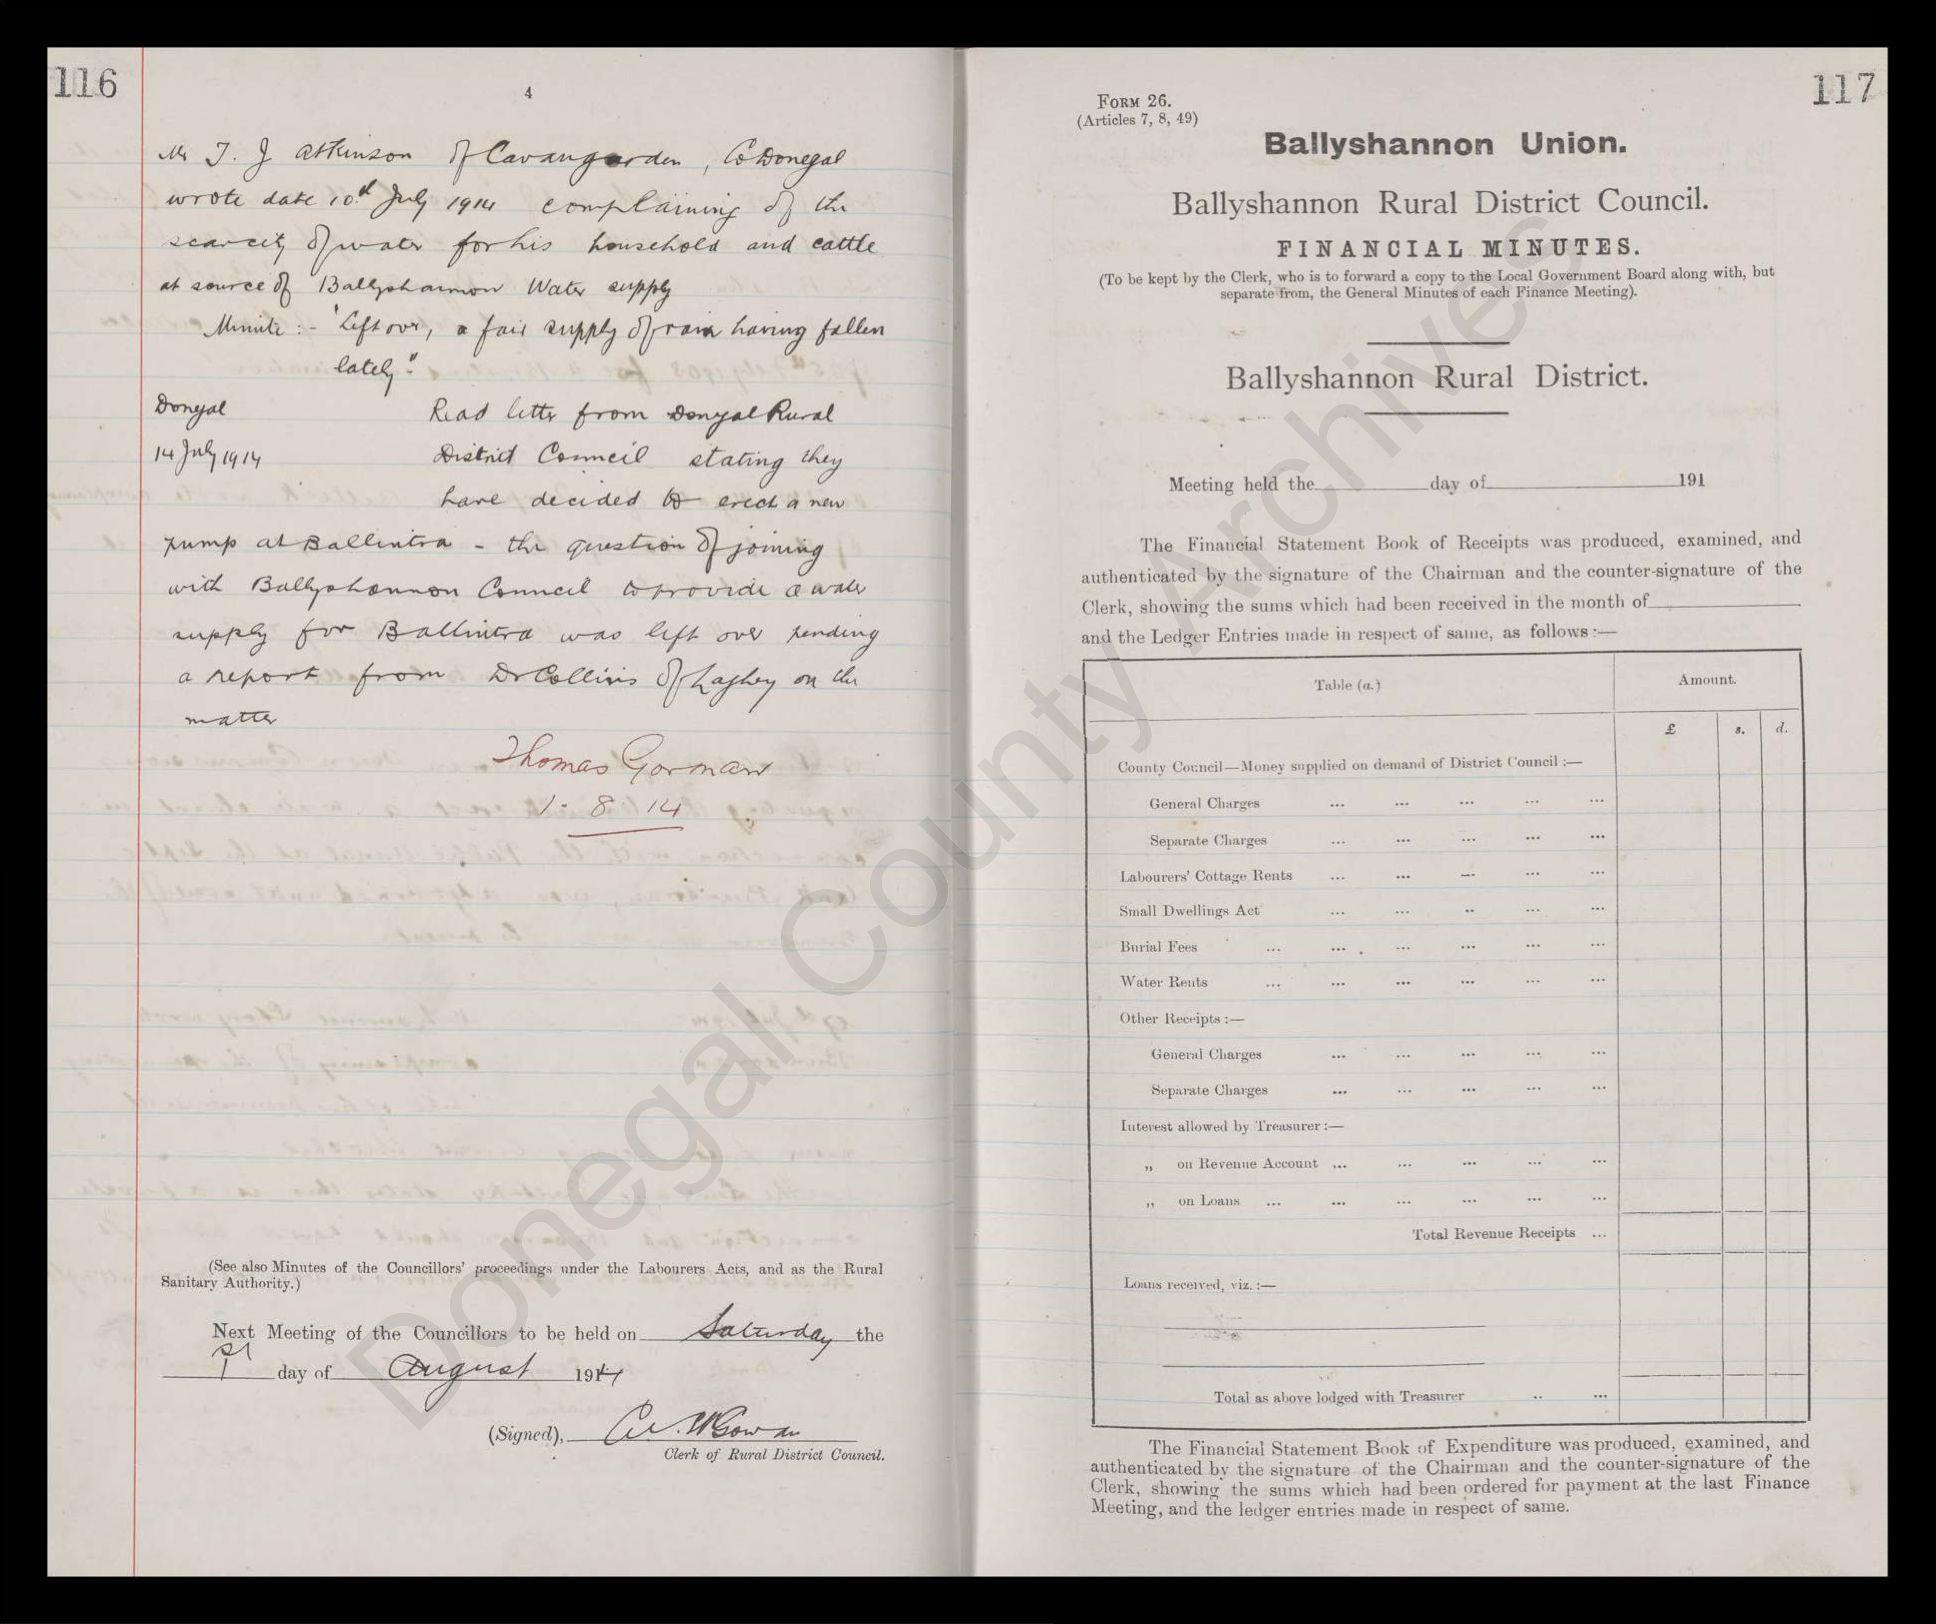 116
4
Mr T. J Atkinson of Cavangarden, Co Donegal
wrote date 10th July 1914 complaining of the
scarcity of water for his household and cattle
at source of Ballyshannon Water supply
Minute :- "Left over, a fair supply of rain having fallen
lately".
Donegal Read letter from Donegal Rural
14 July 1914 District Council stating they
have decided to erect a new
pump at Ballintra - the question of joining
with Ballyshannon Council to provide a water
supply for Ballintra was left over pending
a report from Dr Collins of Laghey on the
matter
Thomas Gorman
1- 8 14
(See also Minutes of the Councillors' proceedings under the Labourers Acts, and as the Rural
Sanitary Authority.)
Next Meeting of the Councillors to be held on Saturday the
1st day of August 1914
(Signed),
Clerk of Rural District Council.
117
FORM 26.
(Articles 7, 8, 49)
Ballyshannon Union.
Ballyshannon Rural District Council.
FINANCIAL MINUTES.
(To be kept by the Clerk, who is to forward a copy to the Local Government Board along with, but
separate from, the General Minutes of each Finance Meeting).
Ballyshannon Rural District.
Meeting held the day of 191
The Financial Statement Book of Receipts was produced, examined, and
authenticated by the signature of the Chairman and the counter-signature of the
Clerk, showing the sums which had been received in the month of
and the Ledger Entries made in respect of same, as follows :—
Table (a.) Amount.
£ s. d.
County Council—Money supplied on demand of District Council :—
General Charges ... ... ... ... ...
Separate Charges ... ... ... ... ...
Labourers' Cottage Rents ... ... ... ... ...
Small Dwellings Act ... ... .. ... ...
Burial Fees ... ... ... ... ... ...
Water Rents ... ... ... ... ... ...
Other Receipts :—
General Charges ... ... ... ... ...
Separate Charges ... ... ... ... ...
Interest allowed by Treasurer :—
„ on Revenue Account ... ... ... ... ...
„ on Loans ... ... ... ... ... ...
Total Revenue Receipts ...
Loans received, viz. :—
Total as above lodged with Treasurer .. ...
The Financial Statement Book of Expenditure was produced, examined, and
authenticated by the signature of the Chairman and the counter-signature of the
Clerk, showing the sums which had been ordered for payment at the last Finance
Meeting, and the ledger entries made in respect of same.
Donegal County Archives